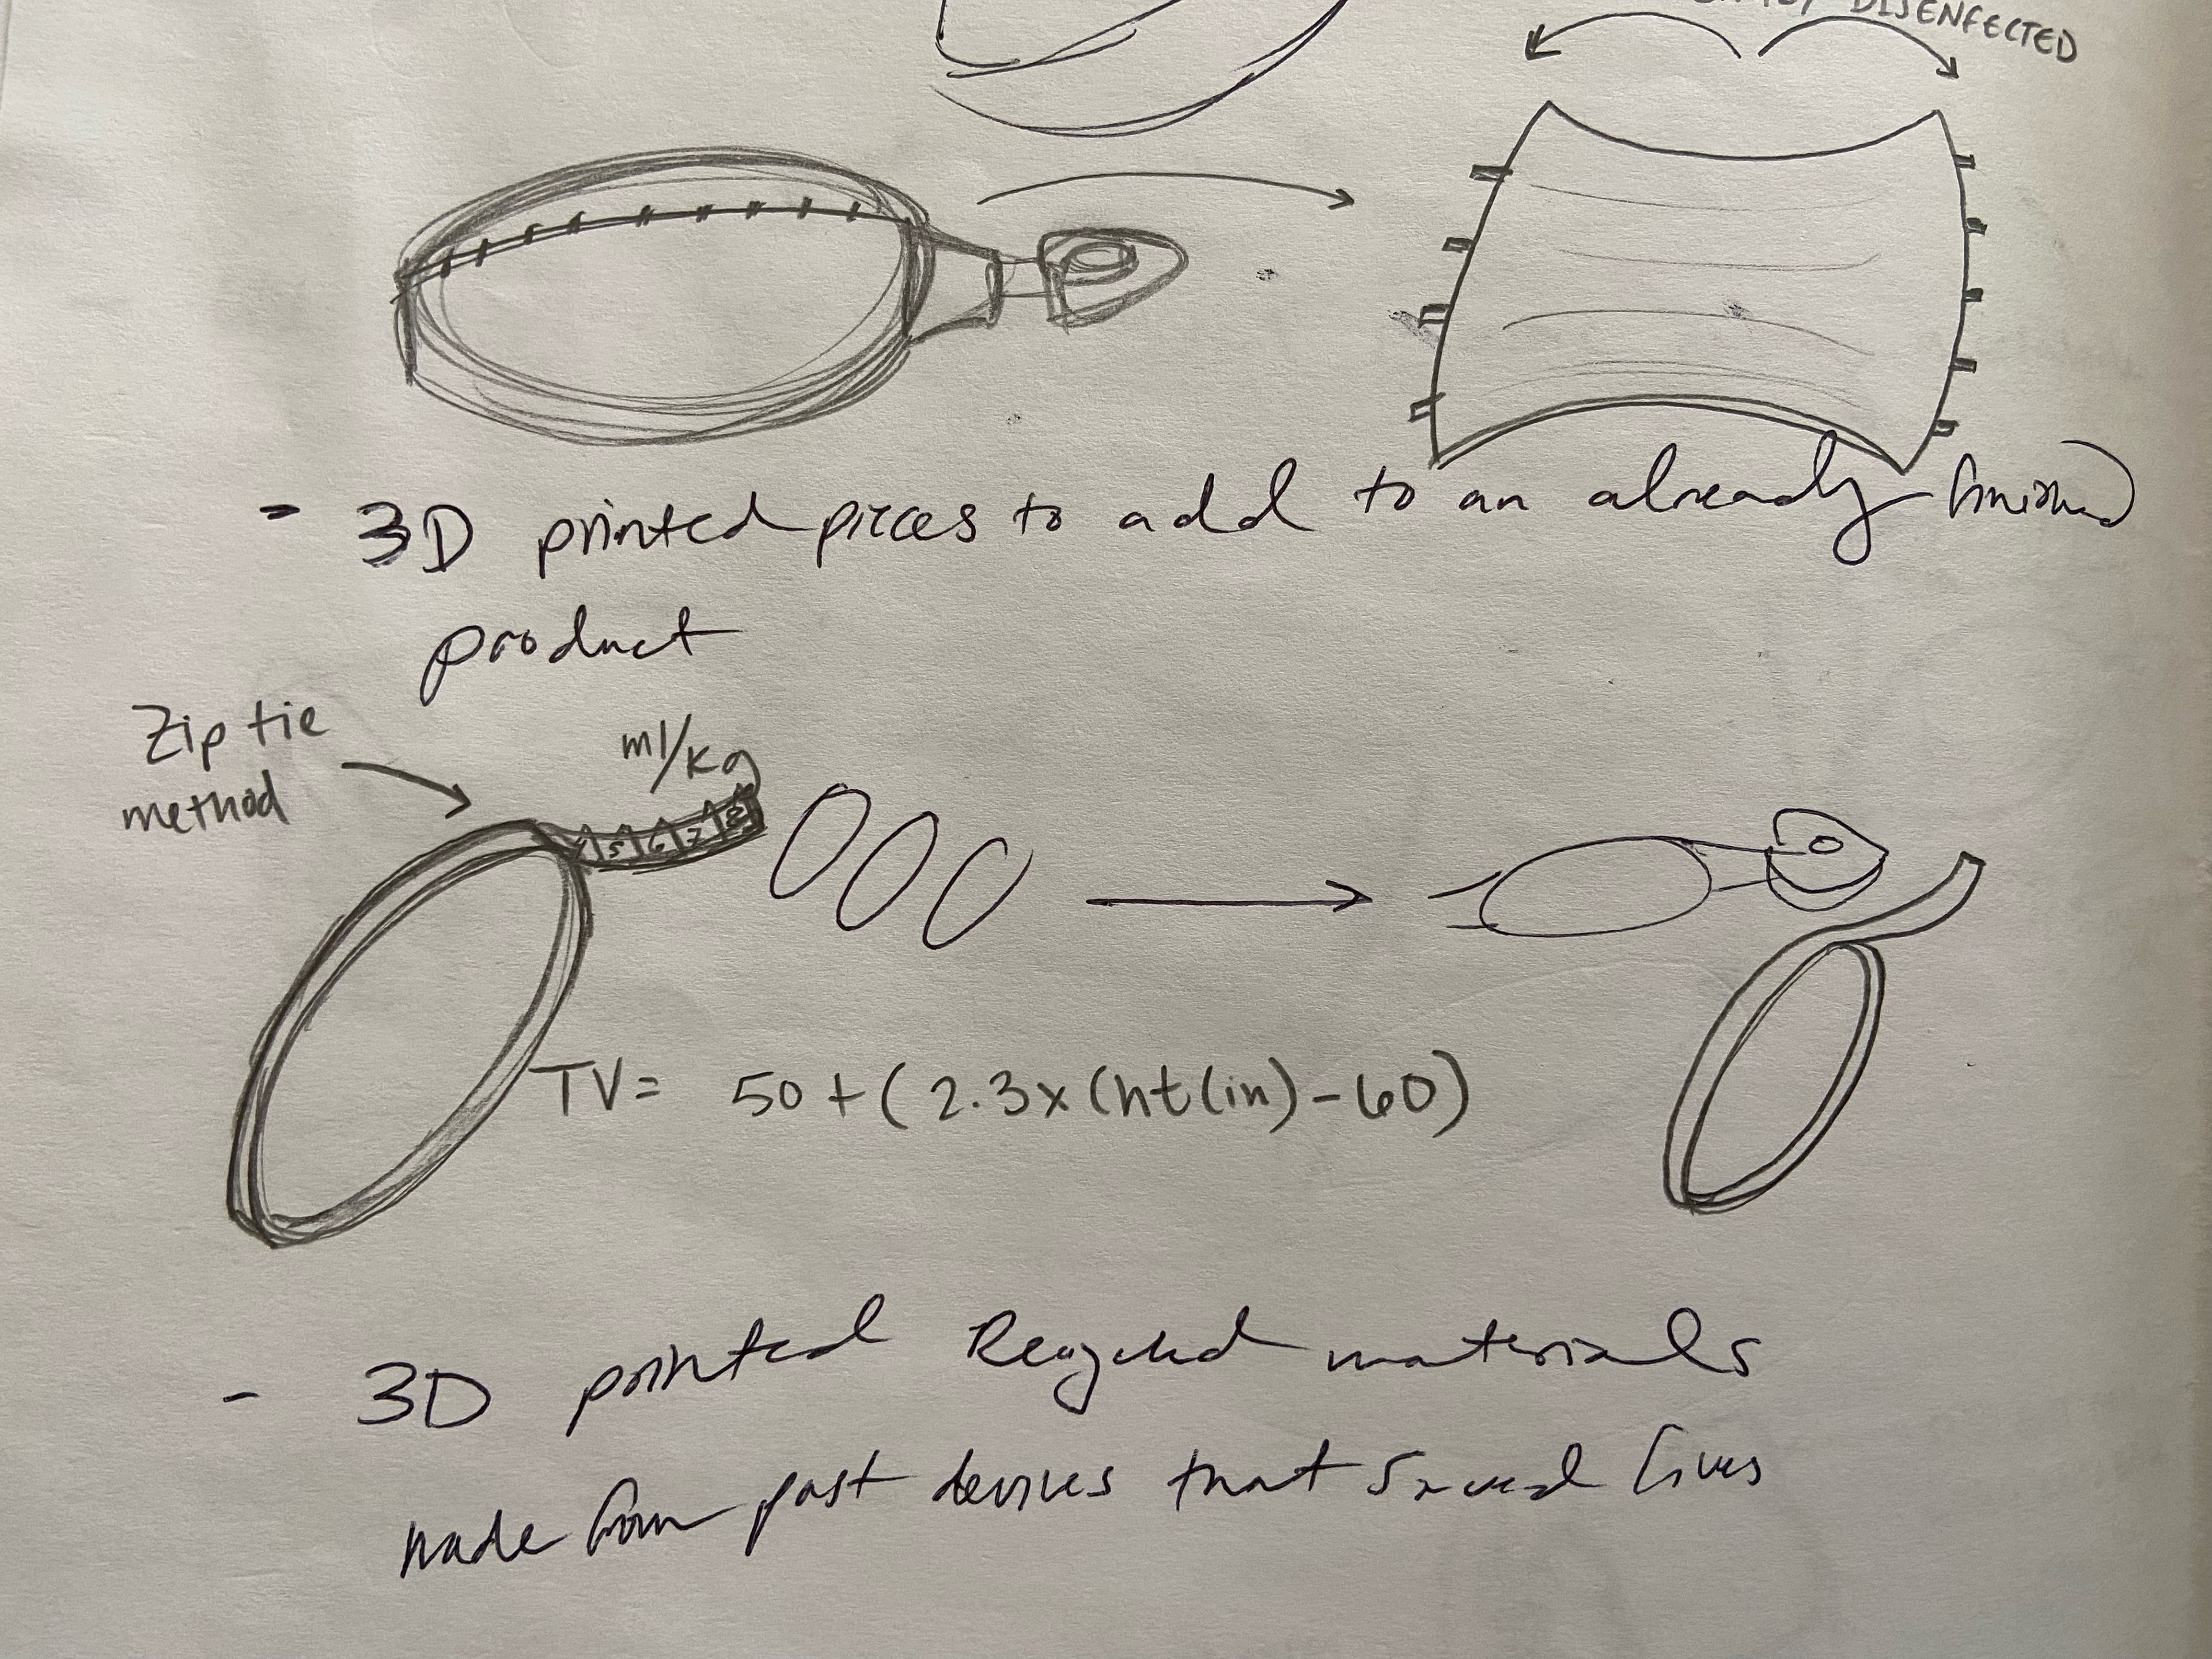 DISENFECTED
- 3D printed pieces to add to an already finished
product
Zip tie
method
ml/kg
4 5 6 7 8
TV= 50+(2.3x(ht(in)-60)
- 3D printed Recycled materials
made from past devices that saved lives